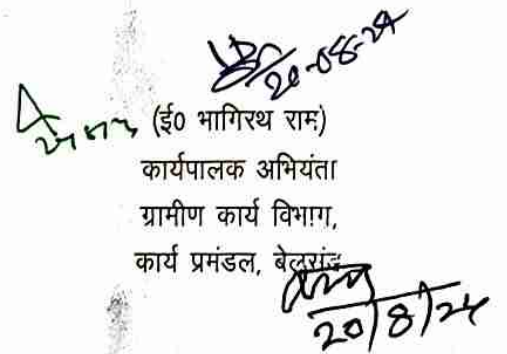 20-08-24
(ई० भागिरथ राम)
कार्यपालक अभियंता
ग्रामीण कार्य विभाग,
कार्य प्रमंडल, बेलसंड
20/8/24